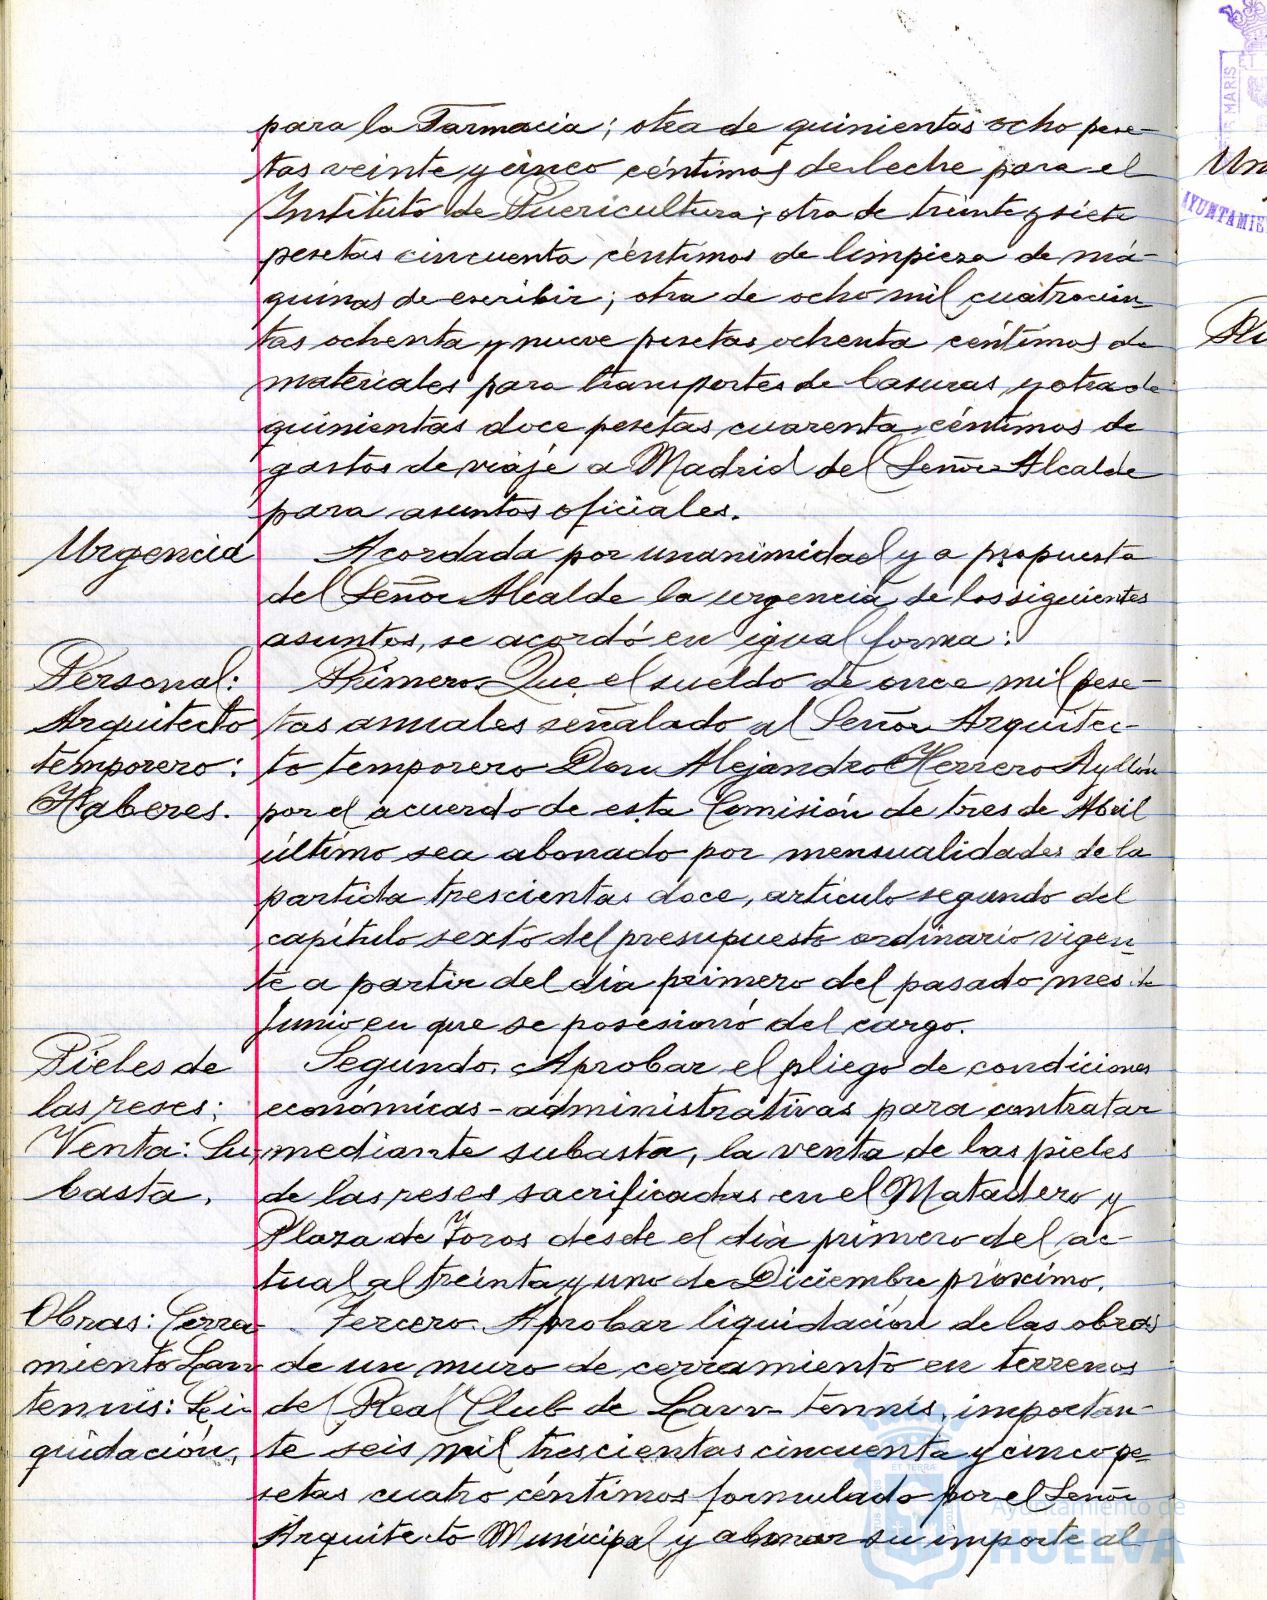 para la Farmacia; otra de quinientas ocho pese-
tas veinte y cinco céntimos de leche para el
Instituto de Puericultura; otra de treinta y siete
pesetas cincuenta céntimos de limpieza de má-
quinas de escribir; otra de ocho mil cuatrocien-
tas ochenta y nueve pesetas ochenta céntimos de
materiales para transportes de basuras y otra de
quinientas doce pesetas cuarenta céntimos de
gastos de viaje a Madrid del Señor Alcalde
para asuntos oficiales.
Urgencia
Acordada por unanimidad y a propuesta
del Señor Alcalde la urgencia de los siguientes
asuntos, se acordó en igual forma:
Personal:
Arquitecto
temporero:
Haberes.
Primero. Que el sueldo de once mil pese-
tas anuales señalado al Señor Arquitec-
to temporero Don Alejandro Herrero Ayllón
por el acuerdo de esta Comisión de tres de Abril
último sea abonado por mensualidades de la
partida trescientas doce, artículo segundo del
capítulo sexto del presupuesto ordinario vigen-
te a partir del día primero del pasado mes de
Junio en que se posesionó del cargo.
Pieles de
las reses:
Venta: Su-
basta.
Segundo. Aprobar el pliego de condiciones
económicas-administrativas para contratar
mediante subasta, la venta de las pieles
de las reses sacrificadas en el Matadero y
Plaza de Toros desde el día primero del ac-
tual al treinta y uno de Diciembre próximo.
Obras: Cerra-
miento Lawn
tennis: Li-
quidación.
Tercero. Aprobar liquidación de las obras
de un muro de cerramiento en terrenos
del Real Club de Lawn tennis, importan-
te seis mil trescientas cincuenta y cinco pe-
setas cuatro céntimos formulado por el Señor
Arquitecto Municipal y abonar su importe al
Ayuntamiento de
HUELVA
MARIS
AYUNTAMIE